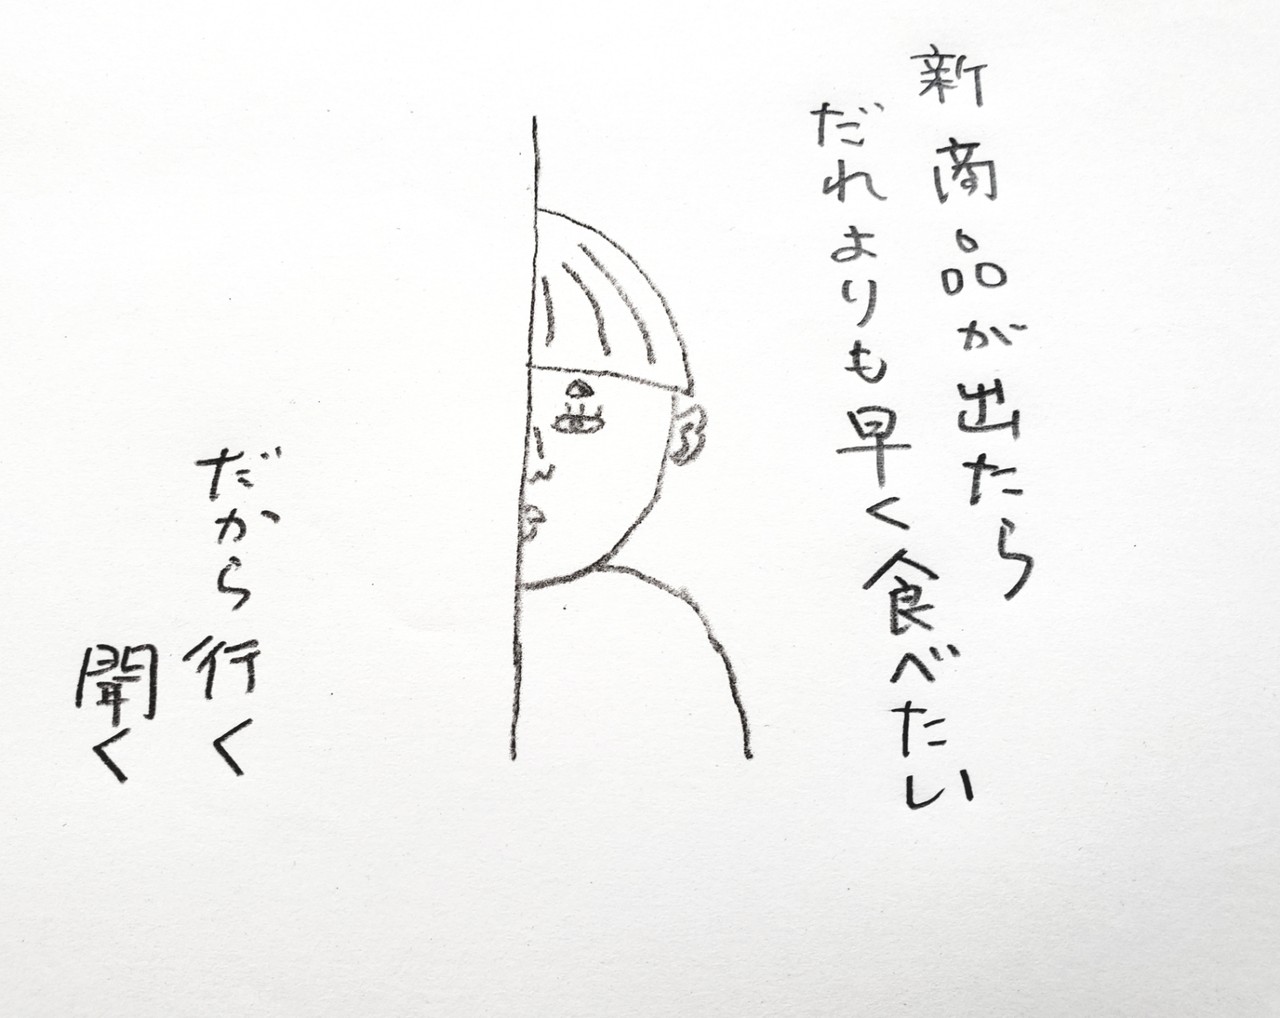 新商品が出たら
だれよりも早く食べたい
だから行く
聞く